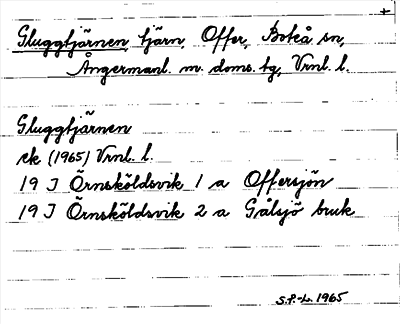 +
Gluggtjärnen, tjärn, Offer, Boteå sn,
Ångermanl. m. doms. tg, Vrnl. l.
Gluggtjärnen
ek (1965) Vrnl. l.
19 J Örnsköldsvik 1 a Offersjön
19 J Örnsköldsvik 2 a Gålsjö bruk
S.P.-L. 1965